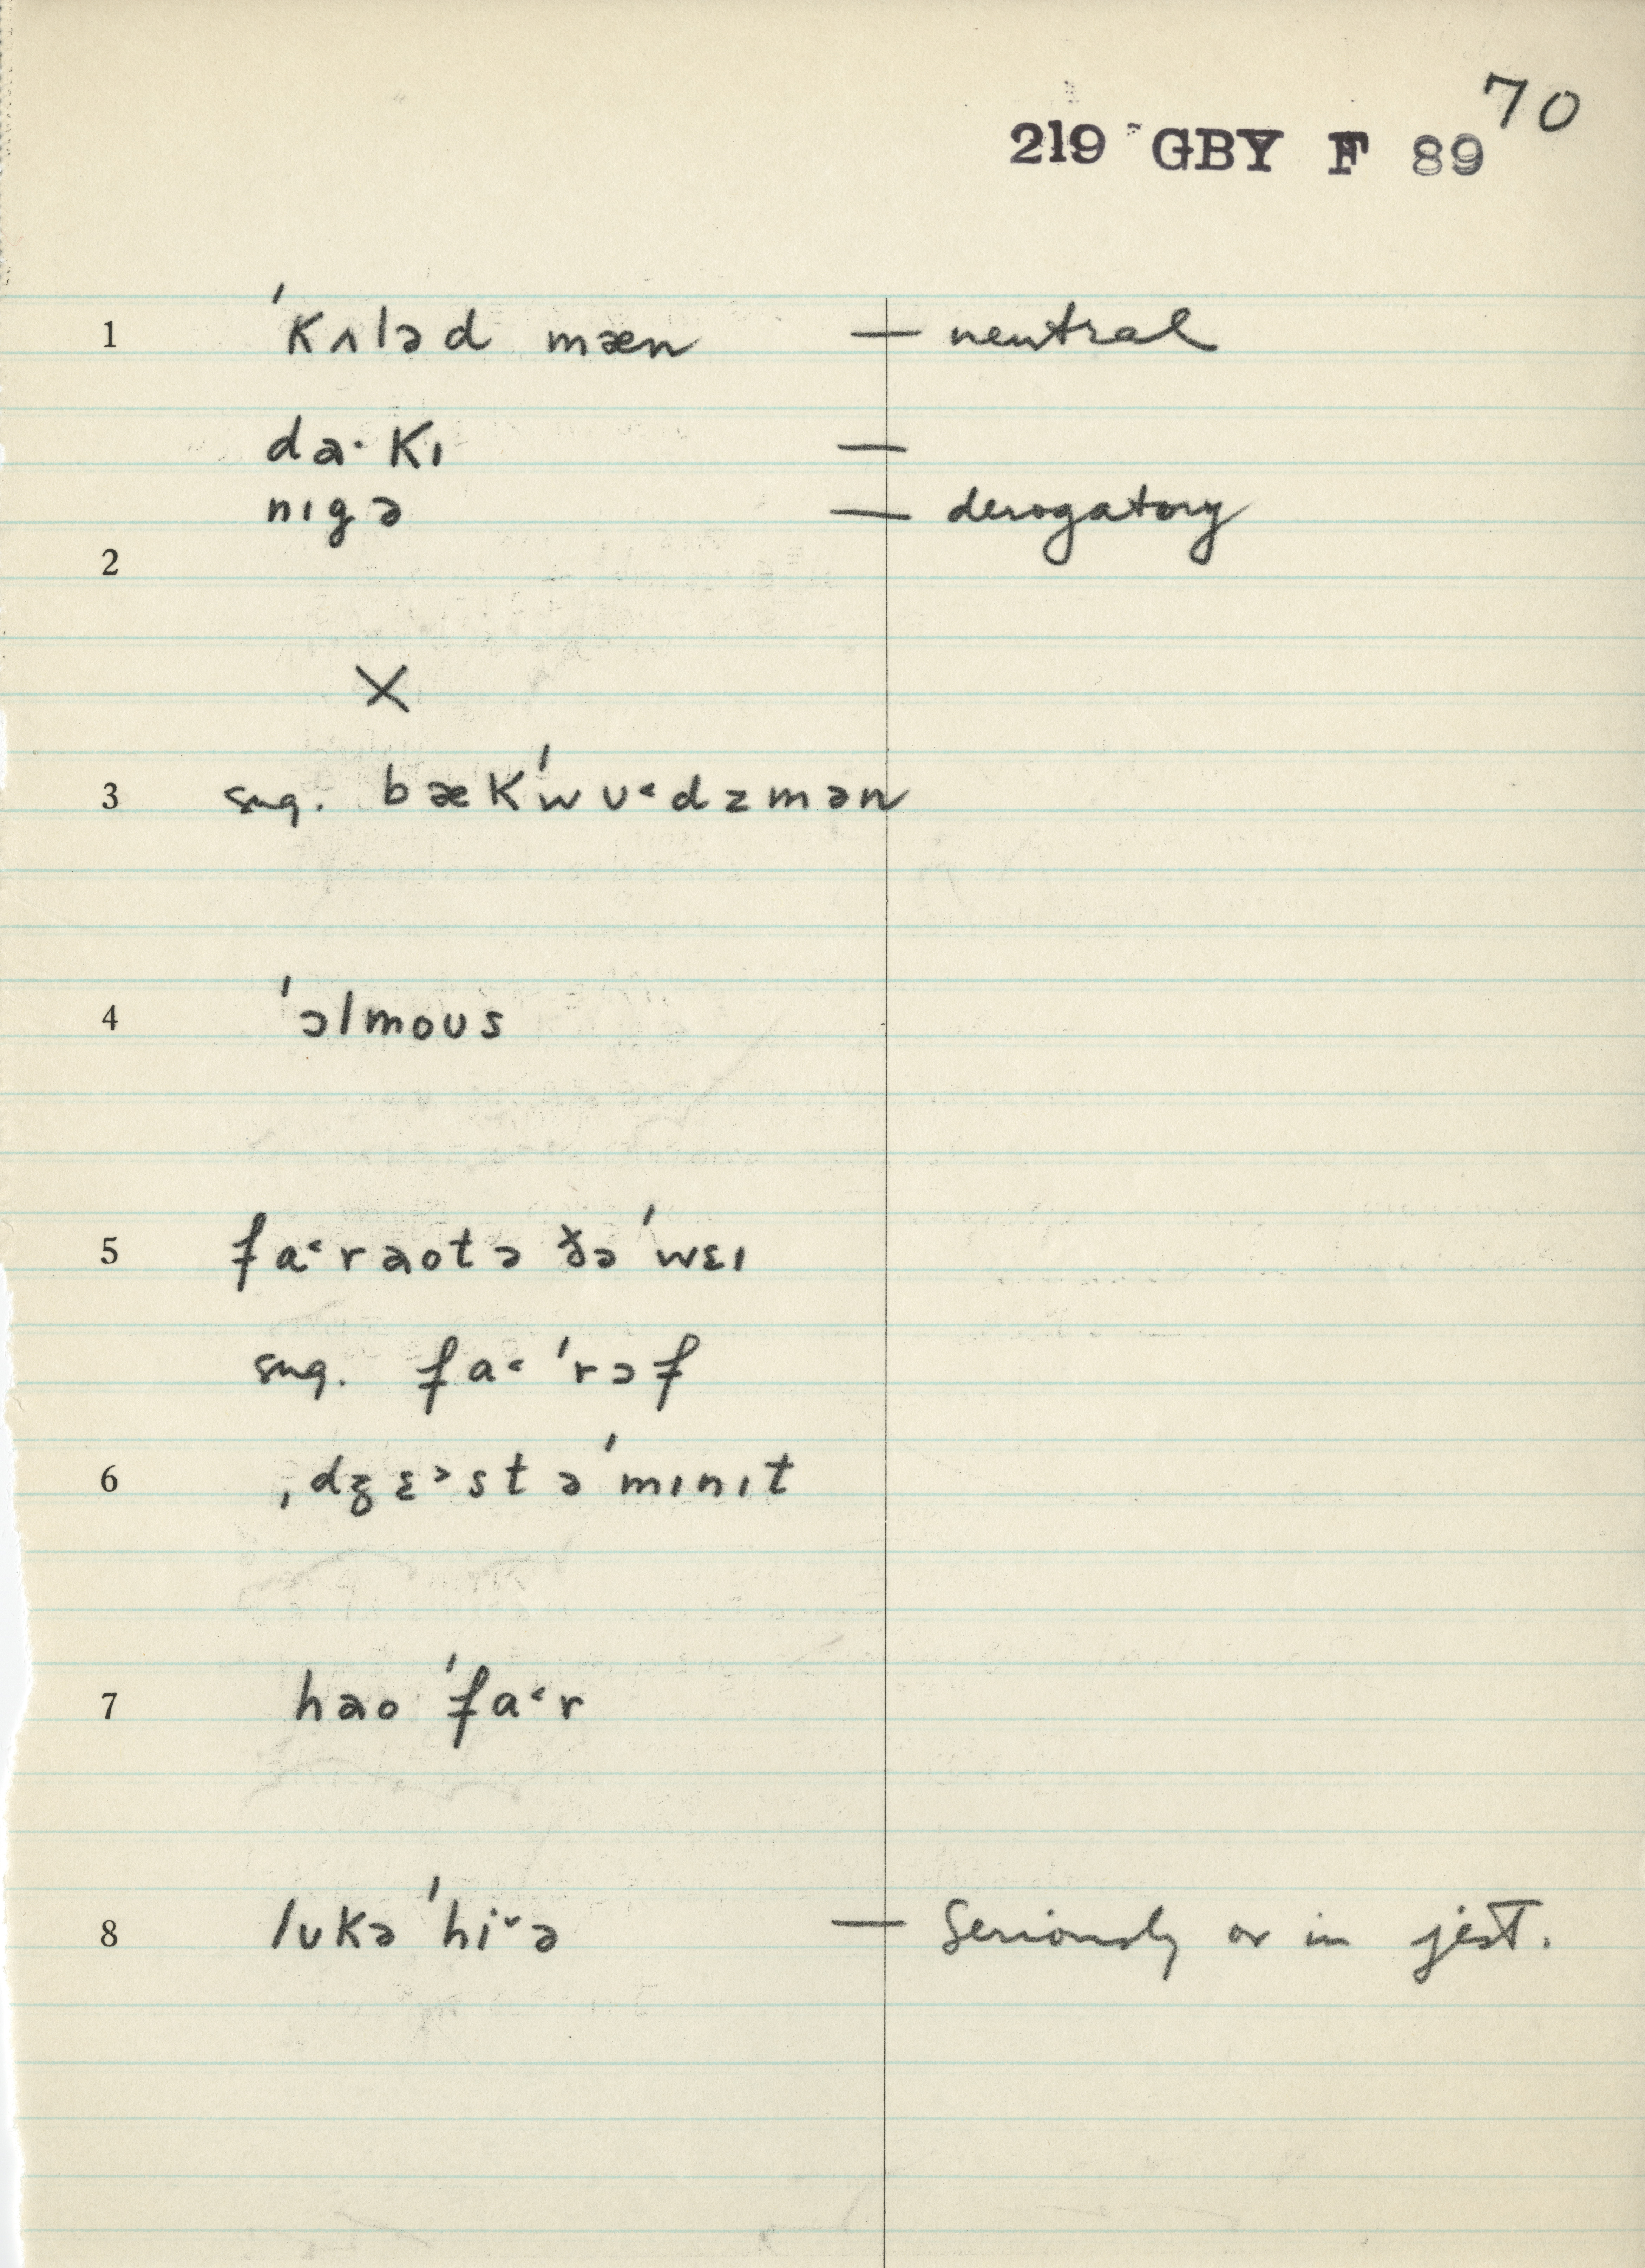 70
219 GBY F 89
1 ˈkʌləd mæn — neutral
da·kɪ —
nɪgə — derogatory
2
X
3 sug. bækˈwʊ˂dzmən
4 ˈɔlmoʊs
5 fa˂raotə ðəˈwɛɪ
sug. fa˂ ˈrɔf
6 ˌdʒɛ˃st əˈmɪnɪt
7 hao ˈfa˂r
8 lʊkə ˈhi˅ə — Seriously or in jest.